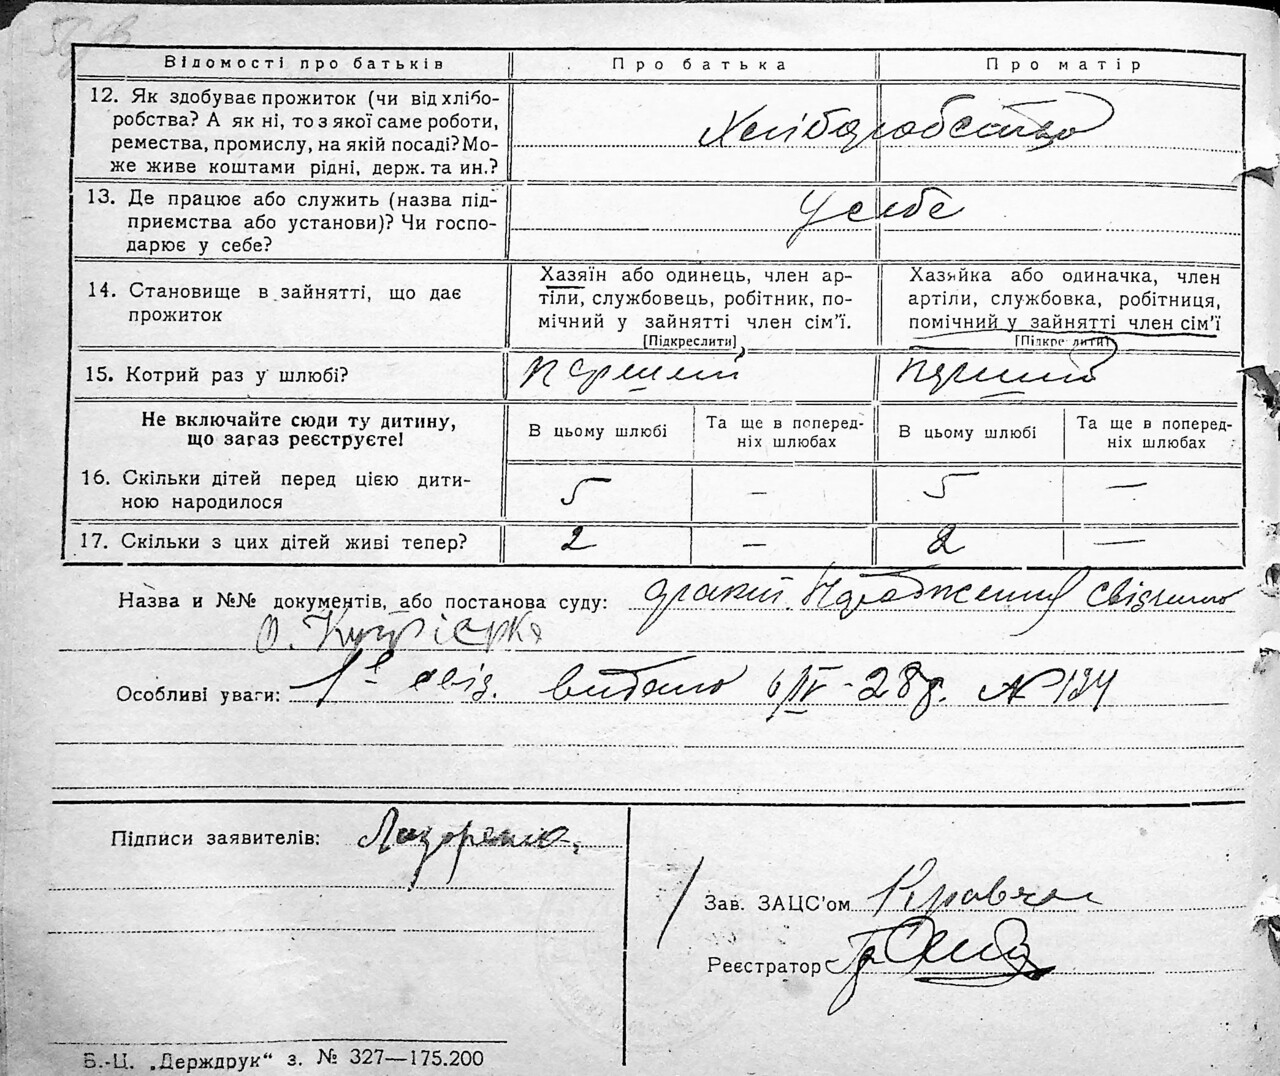 Відомості про батьків Про батька Про матір
12. Як здобуває прожиток (чи від хлібо-
робства? А як ні, то з якої саме роботи,
ремества, промислу, на якій посаді? Мо-
же живе коштами рідні, держ. та ин.?
Хліборобство
13. Де працює або служить (назва під-
приємства або установи)? Чи госпо-
дарює у себе?
У себе
14. Становище в зайнятті, що дає
прожиток
Хазяїн або одинець, член ар-
тіли, службовець, робітник, по-
мічний у зайнятті член сім'ї.
[Підкреслити]
Хазяйка або одиначка, член
артіли, службовка, робітниця,
помічний у зайнятті член сім'ї
[Підкреслити]
15. Котрий раз у шлюбі? перший перший
Не включайте сюди ту дитину,
що загаз реєструєте!
В цьому шлюбі
Та ще в поперед-
ніх шлюбах
В цьому шлюбі
Та ще в поперед-
ніх шлюбах
16. Скільки дітей перед цією дити-
ною народилося
5 — 5 —
17. Скільки з цих дітей живі тепер? 2 — 2 —
Назва и №№ документів, або постанова суду:
О.
Особливі уваги: свід. видано 6/IV-28р. № 134
Підписи заявителів: Лазоренко
Зав. ЗАЦС'ом Кравчен
Реєстратор
Б.-Ц. „Держдрук" з. № 327—175.200